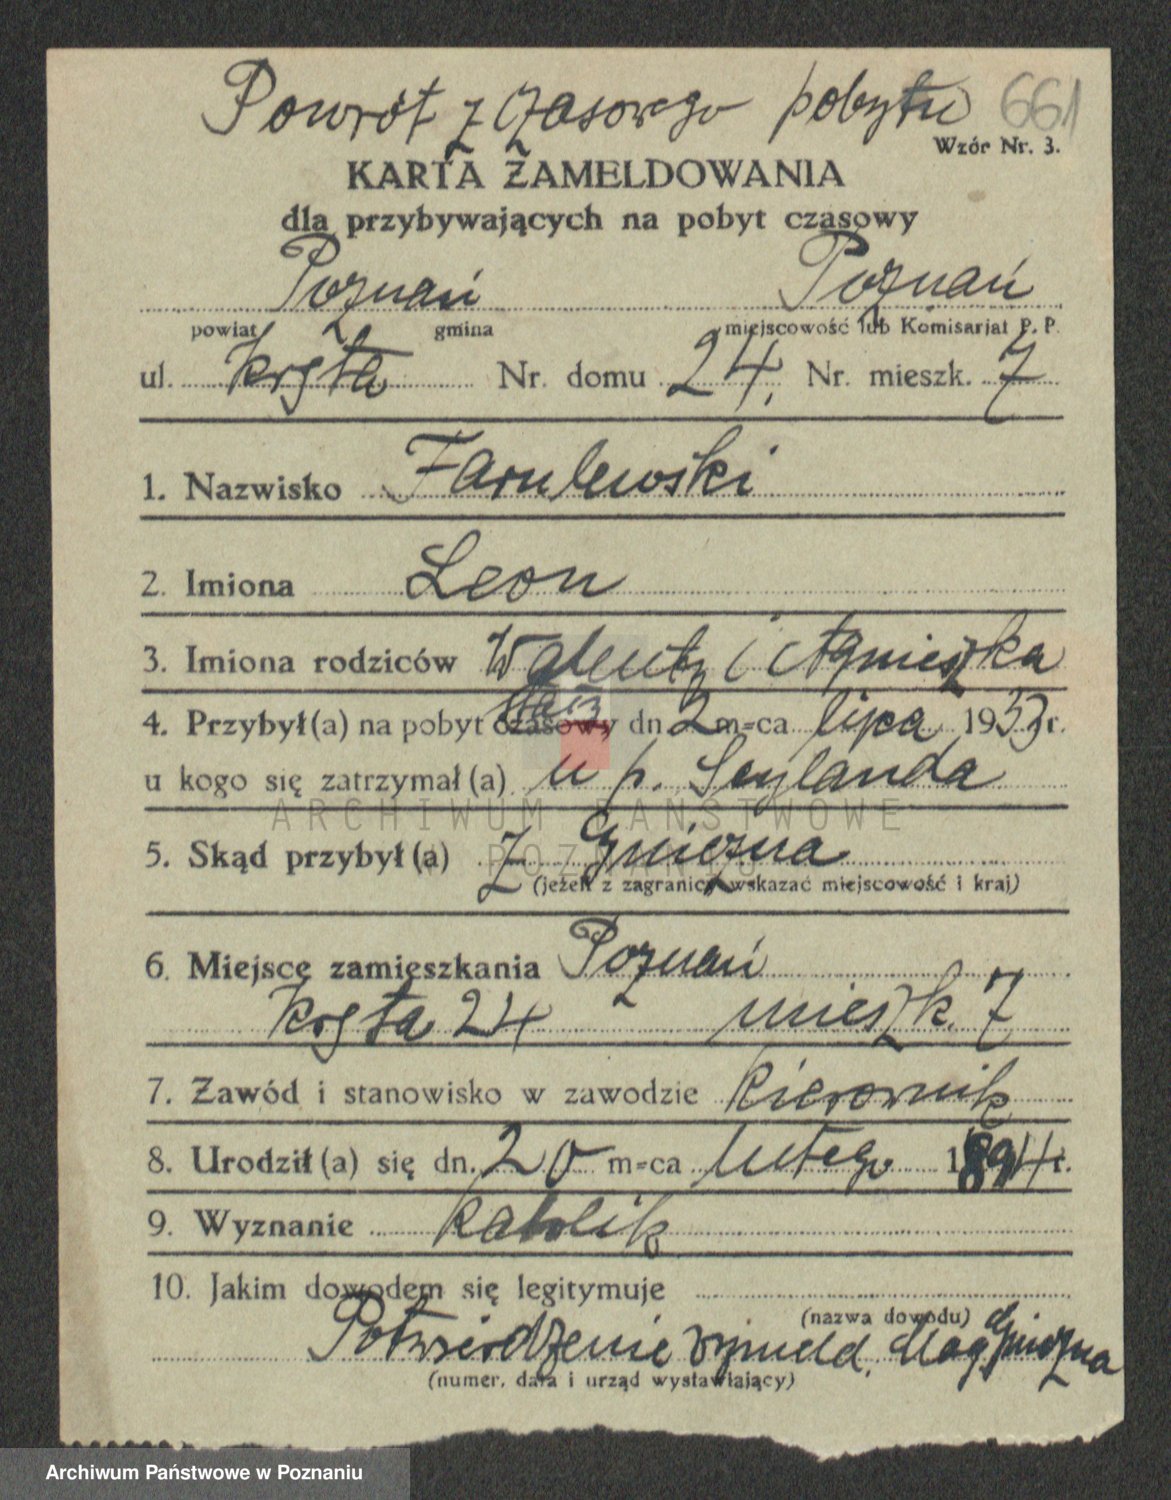 Powrót z czasowego pobytu 661
Wzór Nr. 3.
KARTA ZAMELDOWANIA
dla przybywających na pobyt czasowy
Poznań Poznań
powiat gmina miejscowość lub Komisarjat P. P.
ul. Kręta Nr. domu 24, Nr. mieszk. 7
1. Nazwisko
2. Imiona Leon
3. Imiona rodziców Walenty i Agnieszka
4. Przybył(a) na pobyt czasowy dn 2 m=ca lipca 1933 r.
u kogo się zatrzymał(a) u p.
ARCHIWUM PAŃSTWOWE
POZNANIU
5. Skąd przybył(a) z Gniezna
(jeżeli z zagranicy wskazać miejscowość i kraj)
6. Miejsce zamieszkania Poznań
Kręta 24 mieszk. 7
7. Zawód i stanowisko w zawodzie Kierownik
8. Urodził(a) się dn. 20 m=ca lutego 1894 r.
9. Wyznanie Katolik
10. Jakim dowodem się legitymuje
(nazwa dowodu)
Potwierdzenie wymeld. Mag. Gniezna
(numer, data i urząd wystawiający)
Archiwum Państwowe w Poznaniu